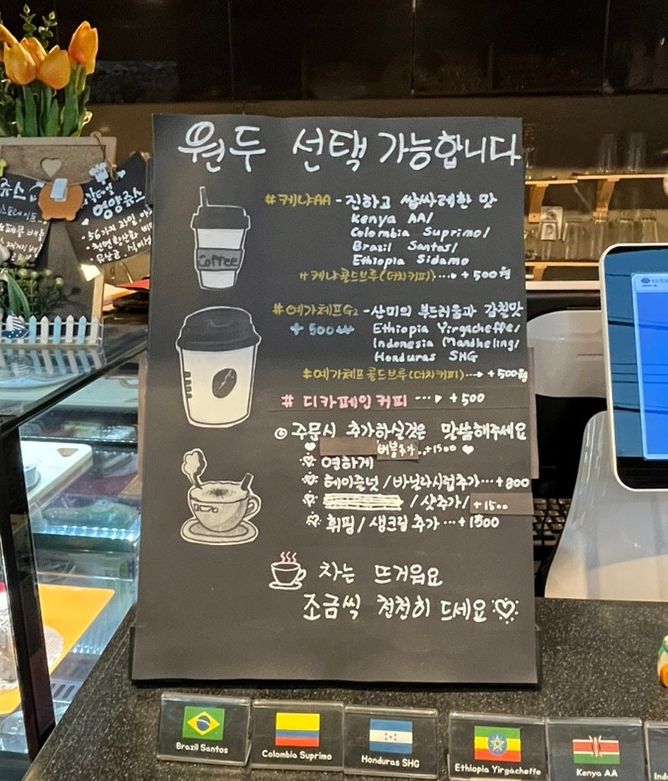 원두 선택 가능합니다
#케냐AA - 진하고 쌉싸레한 맛
Kenya AA/
Colombia Suprimo/
Brazil Santas/
Ethiopia Sidamo
#케냐콜드브루(더치커피)···→ +500원
Coffee
#예가체프G2 - 산미의 부드러움과 감칠맛
+500₩ Ethiopia Yirgacheffe/
Indonesia Mandheling/
Honduras SHG
#예가체프콜드브루(더치커피)···→ +500원
# 디카페인 커피 ···→ +500
◎ 주문시 추가하실것은 말씀해주세요
♥ 버블추가 ..+1500 ♥
연하게
헤이즐넛 / 바닐라시럽추가···+800
/ 샷추가/ +1500
휘핑 / 생크림 추가 ··+ 1500
차는 뜨거워요
조금씩 천천히 드세요♡
영양쥬스
Brazil Santos
Colombia Suprimo
Honduras SHG
Ethiopia Yirgacheffe
Kenya AA